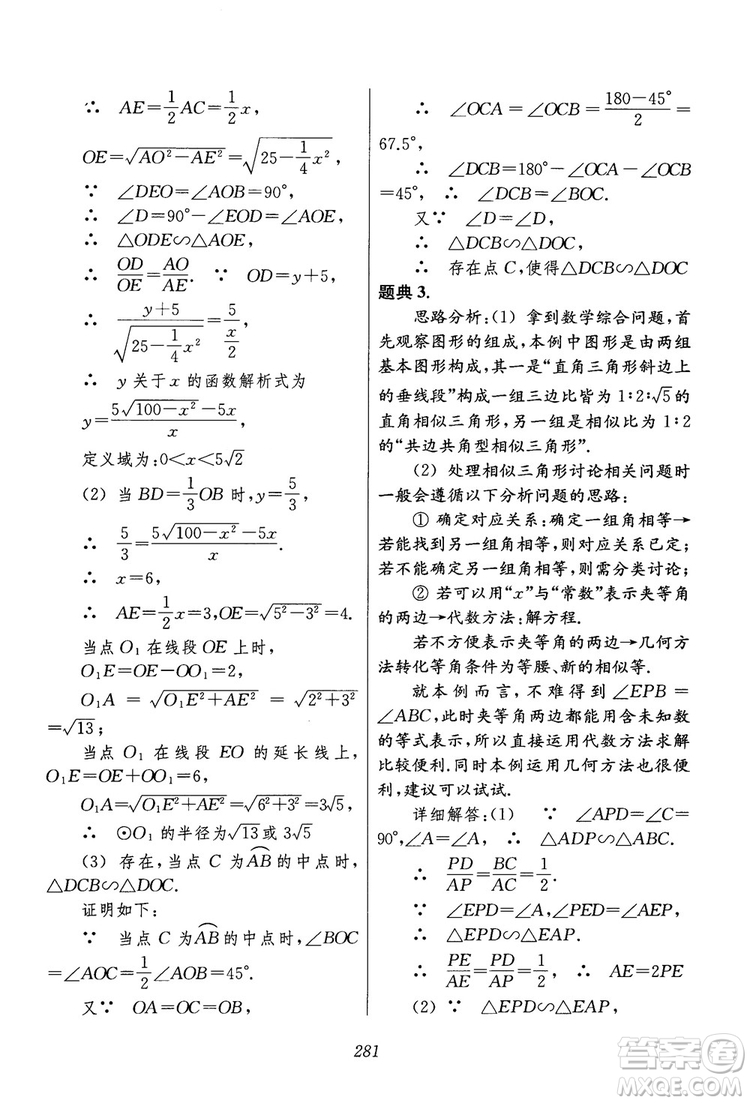 ∴ AE=1/2AC=1/2x,
OE=√(AO²−AE²)=√(25−1/4x²).
∵ ∠DEO=∠AOB=90°,
∴ ∠D=90°−∠EOD=∠AOE,
∴ △ODE∽△AOE,
∴ OD/OE=AO/AE. ∵ OD=y+5,
∴ (y+5)/√(25−1/4x²)=5/(x/2)
∴ y关于x的函数解析式为
y=(5√(100−x²)−5x)/x
定义域为:0<x<5√2
(2) 当BD=1/3OB时,y=5/3,
∴ 5/3=(5√(100−x²)−5x)/x.
∴ x=6,
∴ AE=1/2x=3,OE=√(5²−3²)=4.
当点O₁在线段OE上时,
O₁E=OE−OO₁=2,
O₁A=√(O₁E²+AE²)=√(2²+3²)
=√13;
当点O₁在线段EO的延长线上,
O₁E=OE+OO₁=6,
O₁A=√(O₁E²+AE²)=√(6²+3²)=3√5,
∴ ⊙O₁的半径为√13或3√5
(3) 存在,当点C为A͡B的中点时,
△DCB∽△DOC.
证明如下:
∵ 当点C为A͡B的中点时,∠BOC
=∠AOC=1/2∠AOB=45°.
又∵ OA=OC=OB,
∴ ∠OCA=∠OCB=(180−45°)/2=
67.5°,
∴ ∠DCB=180°−∠OCA−∠OCB
=45°, ∴ ∠DCB=∠BOC.
又∵ ∠D=∠D,
∴ △DCB∽△DOC,
∴ 存在点C,使得△DCB∽△DOC
题典3.
思路分析:(1) 拿到数学综合问题,首
先观察图形的组成,本例中图形是由两组
基本图形构成,其一是“直角三角形斜边上
的垂线段”构成一组三边比皆为1∶2∶√5的
直角相似三角形,另一组是相似比为1∶2
的“共边共角型相似三角形”.
(2) 处理相似三角形讨论相关问题时
一般会遵循以下分析问题的思路:
① 确定对应关系:确定一组角相等→
若能说明另一组角相等,则对应关系已定;
若无法确定另一组角相等,则需分类讨论;
② 若可以用“x”与“常数”表示夹等角
的两边→代数方法:解方程.
若不方便表示夹等角的两边→几何方
法转化等角条件为等腰、新的相似等.
就本例而言,不难得到∠EPB=
∠ABC,此时夹等角两边都能用含未知数
的等式表示,所以直接运用代数方法求解
比较便利.同时本例运用几何方法也很便
利,建议可以试试.
详细解答:(1) ∵ ∠APD=∠C=
90°,∠A=∠A, ∴ △ADP∽△ABC.
∴ PD/AP=BC/AC=1/2.
∵ ∠EPD=∠A,∠PED=∠AEP,
∴ △EPD∽△EAP.
∴ PE/AE=PD/AP=1/2. ∴ AE=2PE
(2) ∵ △EPD∽△EAP,
281
答案圈
MXQE.COM